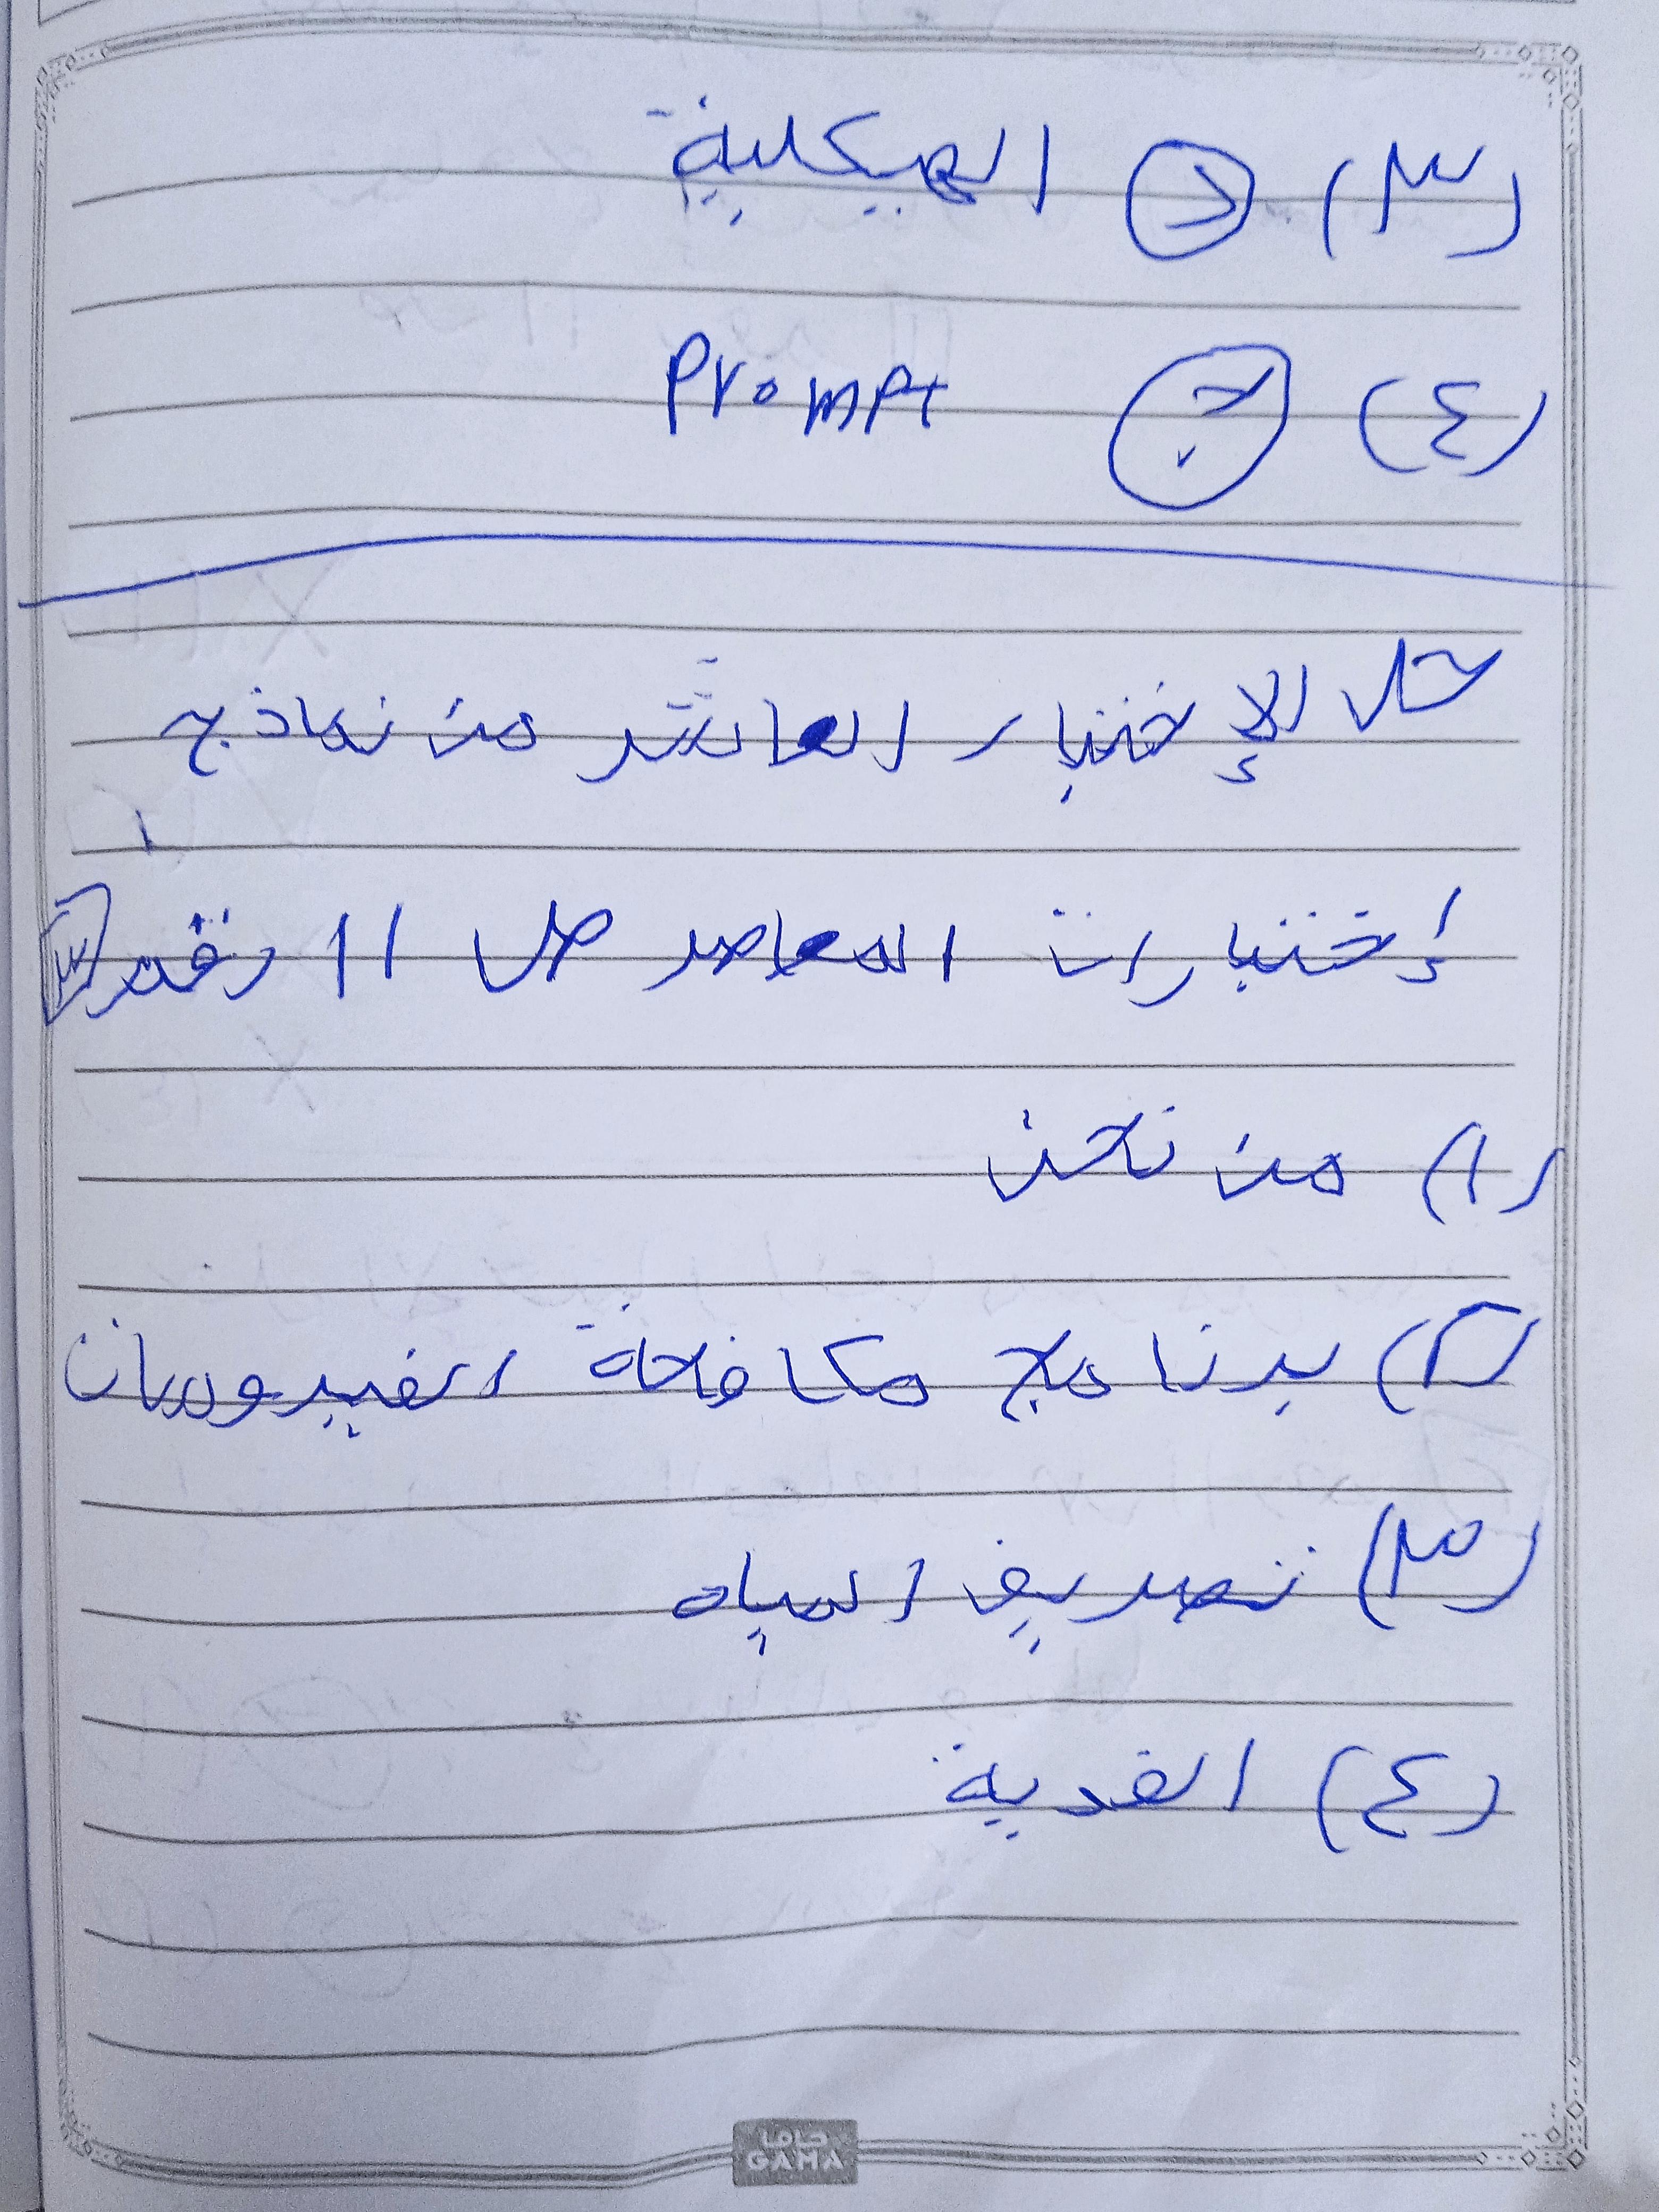 (٣) د الهيكلية
(٤) ج Prompt
حل الإختبار العاشر من نماذج
إختبارات المعاصر ص ١١ رقم ٣
(١) من نحن
(٢) برنامج مكافحة الفيروسات
(٣) تصريف المياه
(٤) الفدية
جاما
GAMA